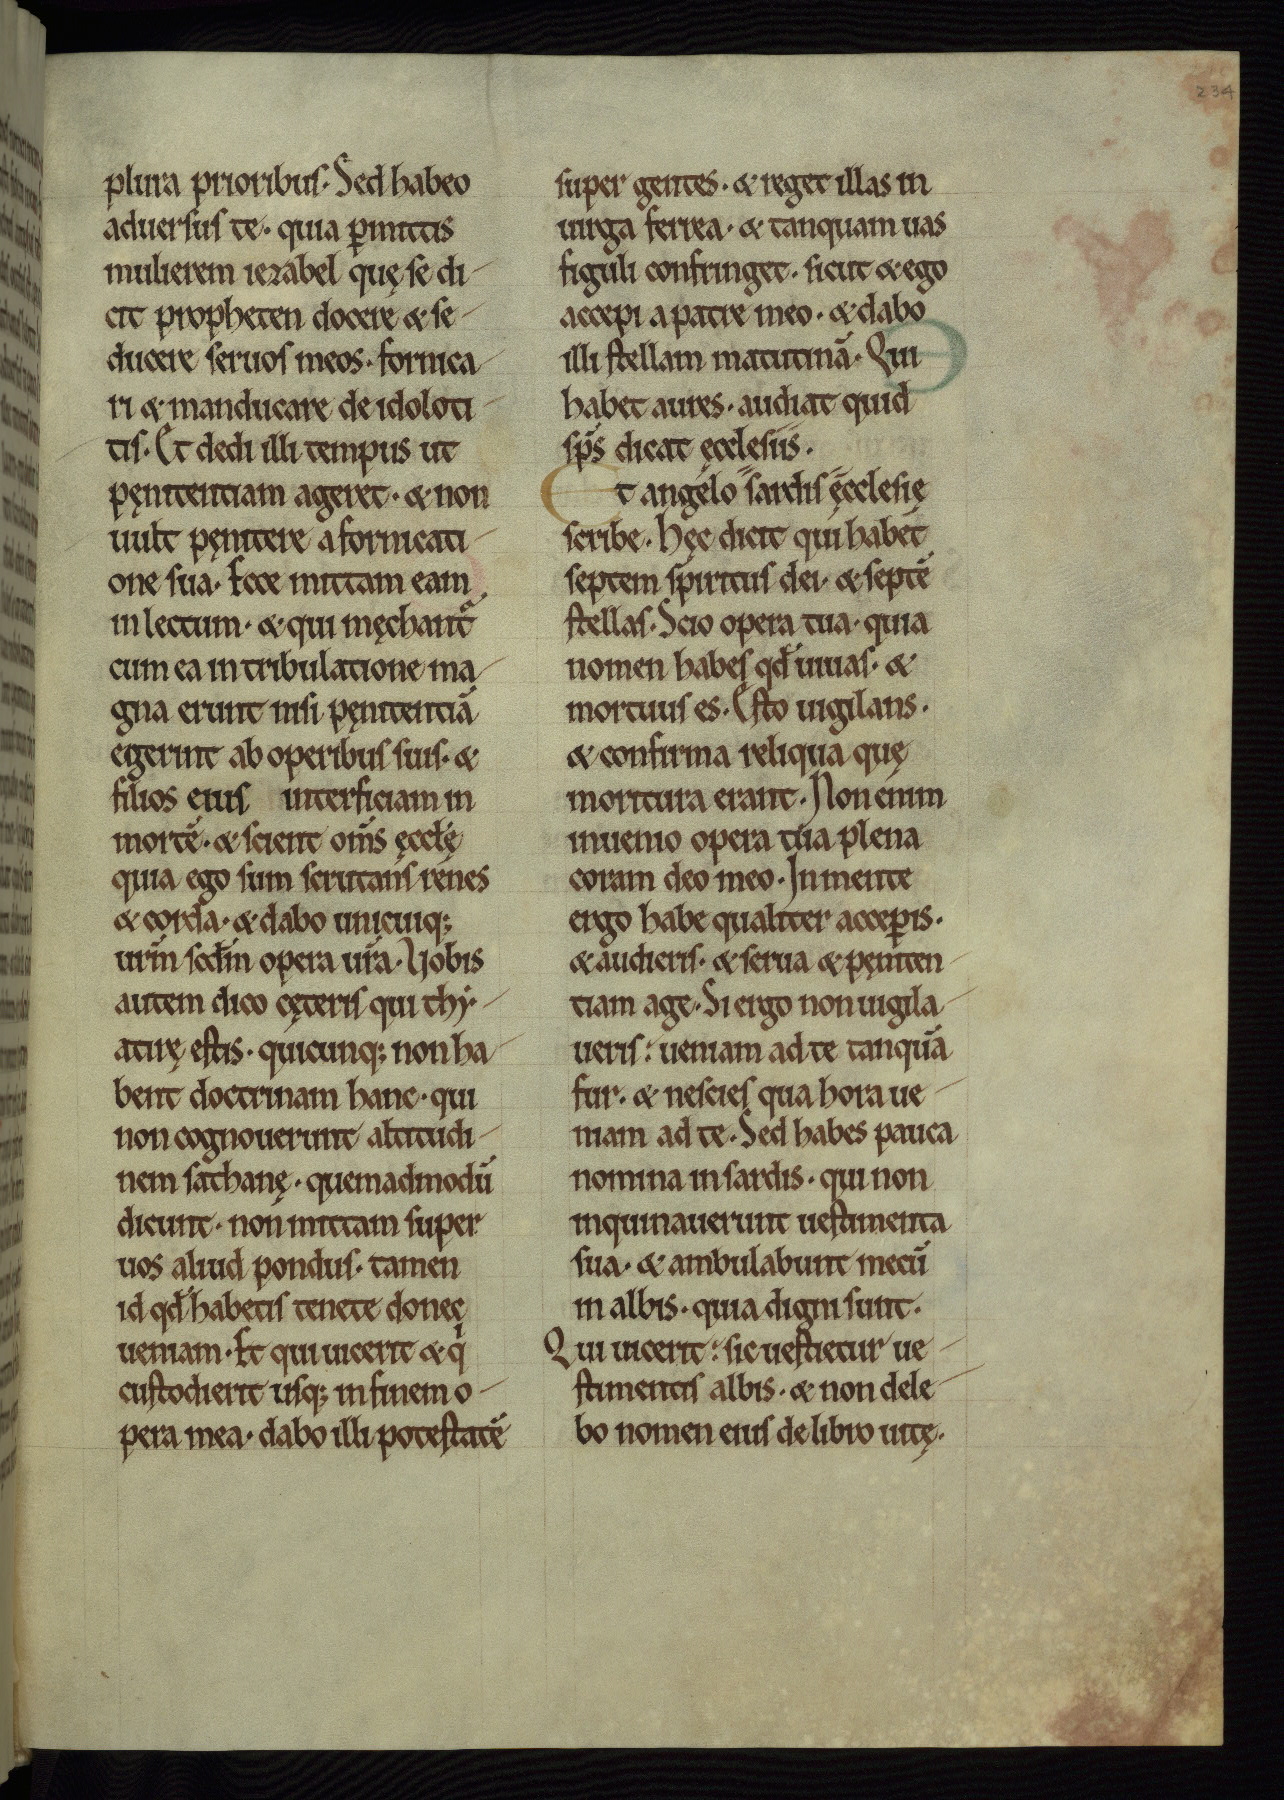 234
plura prioribus. Sed habeo
aduersus te. quia ꝑmittis
mulierem iezabel quę se di-
cit propheten docere & se-
ducere seruos meos. fornica-
ri & manducare de idoloti-
tis. Et dedi illi tempus ut
pęnitentiam ageret. & non
uult pęnitere a fornicati-
one sua. Ecce mittam eam
in lectum. & qui męchant᷑
cum ea in tribulatione ma-
gna erunt nisi pęnitentiā
egerint ab operibus suis. &
filios eius interficiam in
mortē. & scient om̅s ęccłę
quia ego sum scrutans renes
& corda. & dabo unicuiq;
ur̅m scđm opera ur̅a. Uobis
autem dico cęteris qui thy-
atirę estis. quicunq; non ha-
bent doctrinam hanc. qui
non cognouerunt altitudi-
nem sathanę. quemadmodū
dicunt. non mittam super
uos aliud pondus. tamen
id qđ habetis tenete donec
ueniam. Et qui uicerit & qͥ
custodierit usq; in finem o-
pera mea. dabo illi potestatē
super gentes. & reget illas in
uirga ferrea. & tanquam uas
figuli confringet. sicut & ego
accepi a patre meo. & dabo
illi stellam matutinā. Qui
habet aures. audiat quid
sp̅s dicat ęcclesiis.
Et angelo sardis ęcclesię
scribe. Hęc dicit qui habet
septem spiritus dei. & septē
stellas. Scio opera tua. quia
nomen habes qđ uiuas. &
mortuus es. Esto uigilans.
& confirma reliqua quę
moritura erant. Non enim
inuenio opera tua plena
coram deo meo. In mente
ergo habe qualiter acceꝑis.
& audieris. & serua & pęniten-
tiam age. Si ergo non uigila-
ueris: ueniam ad te tanquā
fur. & nescies qua hora ue-
niam ad te. Sed habes pauca
nomina in sardis. qui non
inquinauerunt uestimenta
sua. & ambulabunt mecū
in albis. quia digni sunt.
Qui uicerit: sic uestietur ue-
stimentis albis. & non dele-
bo nomen eius de libro uitę.